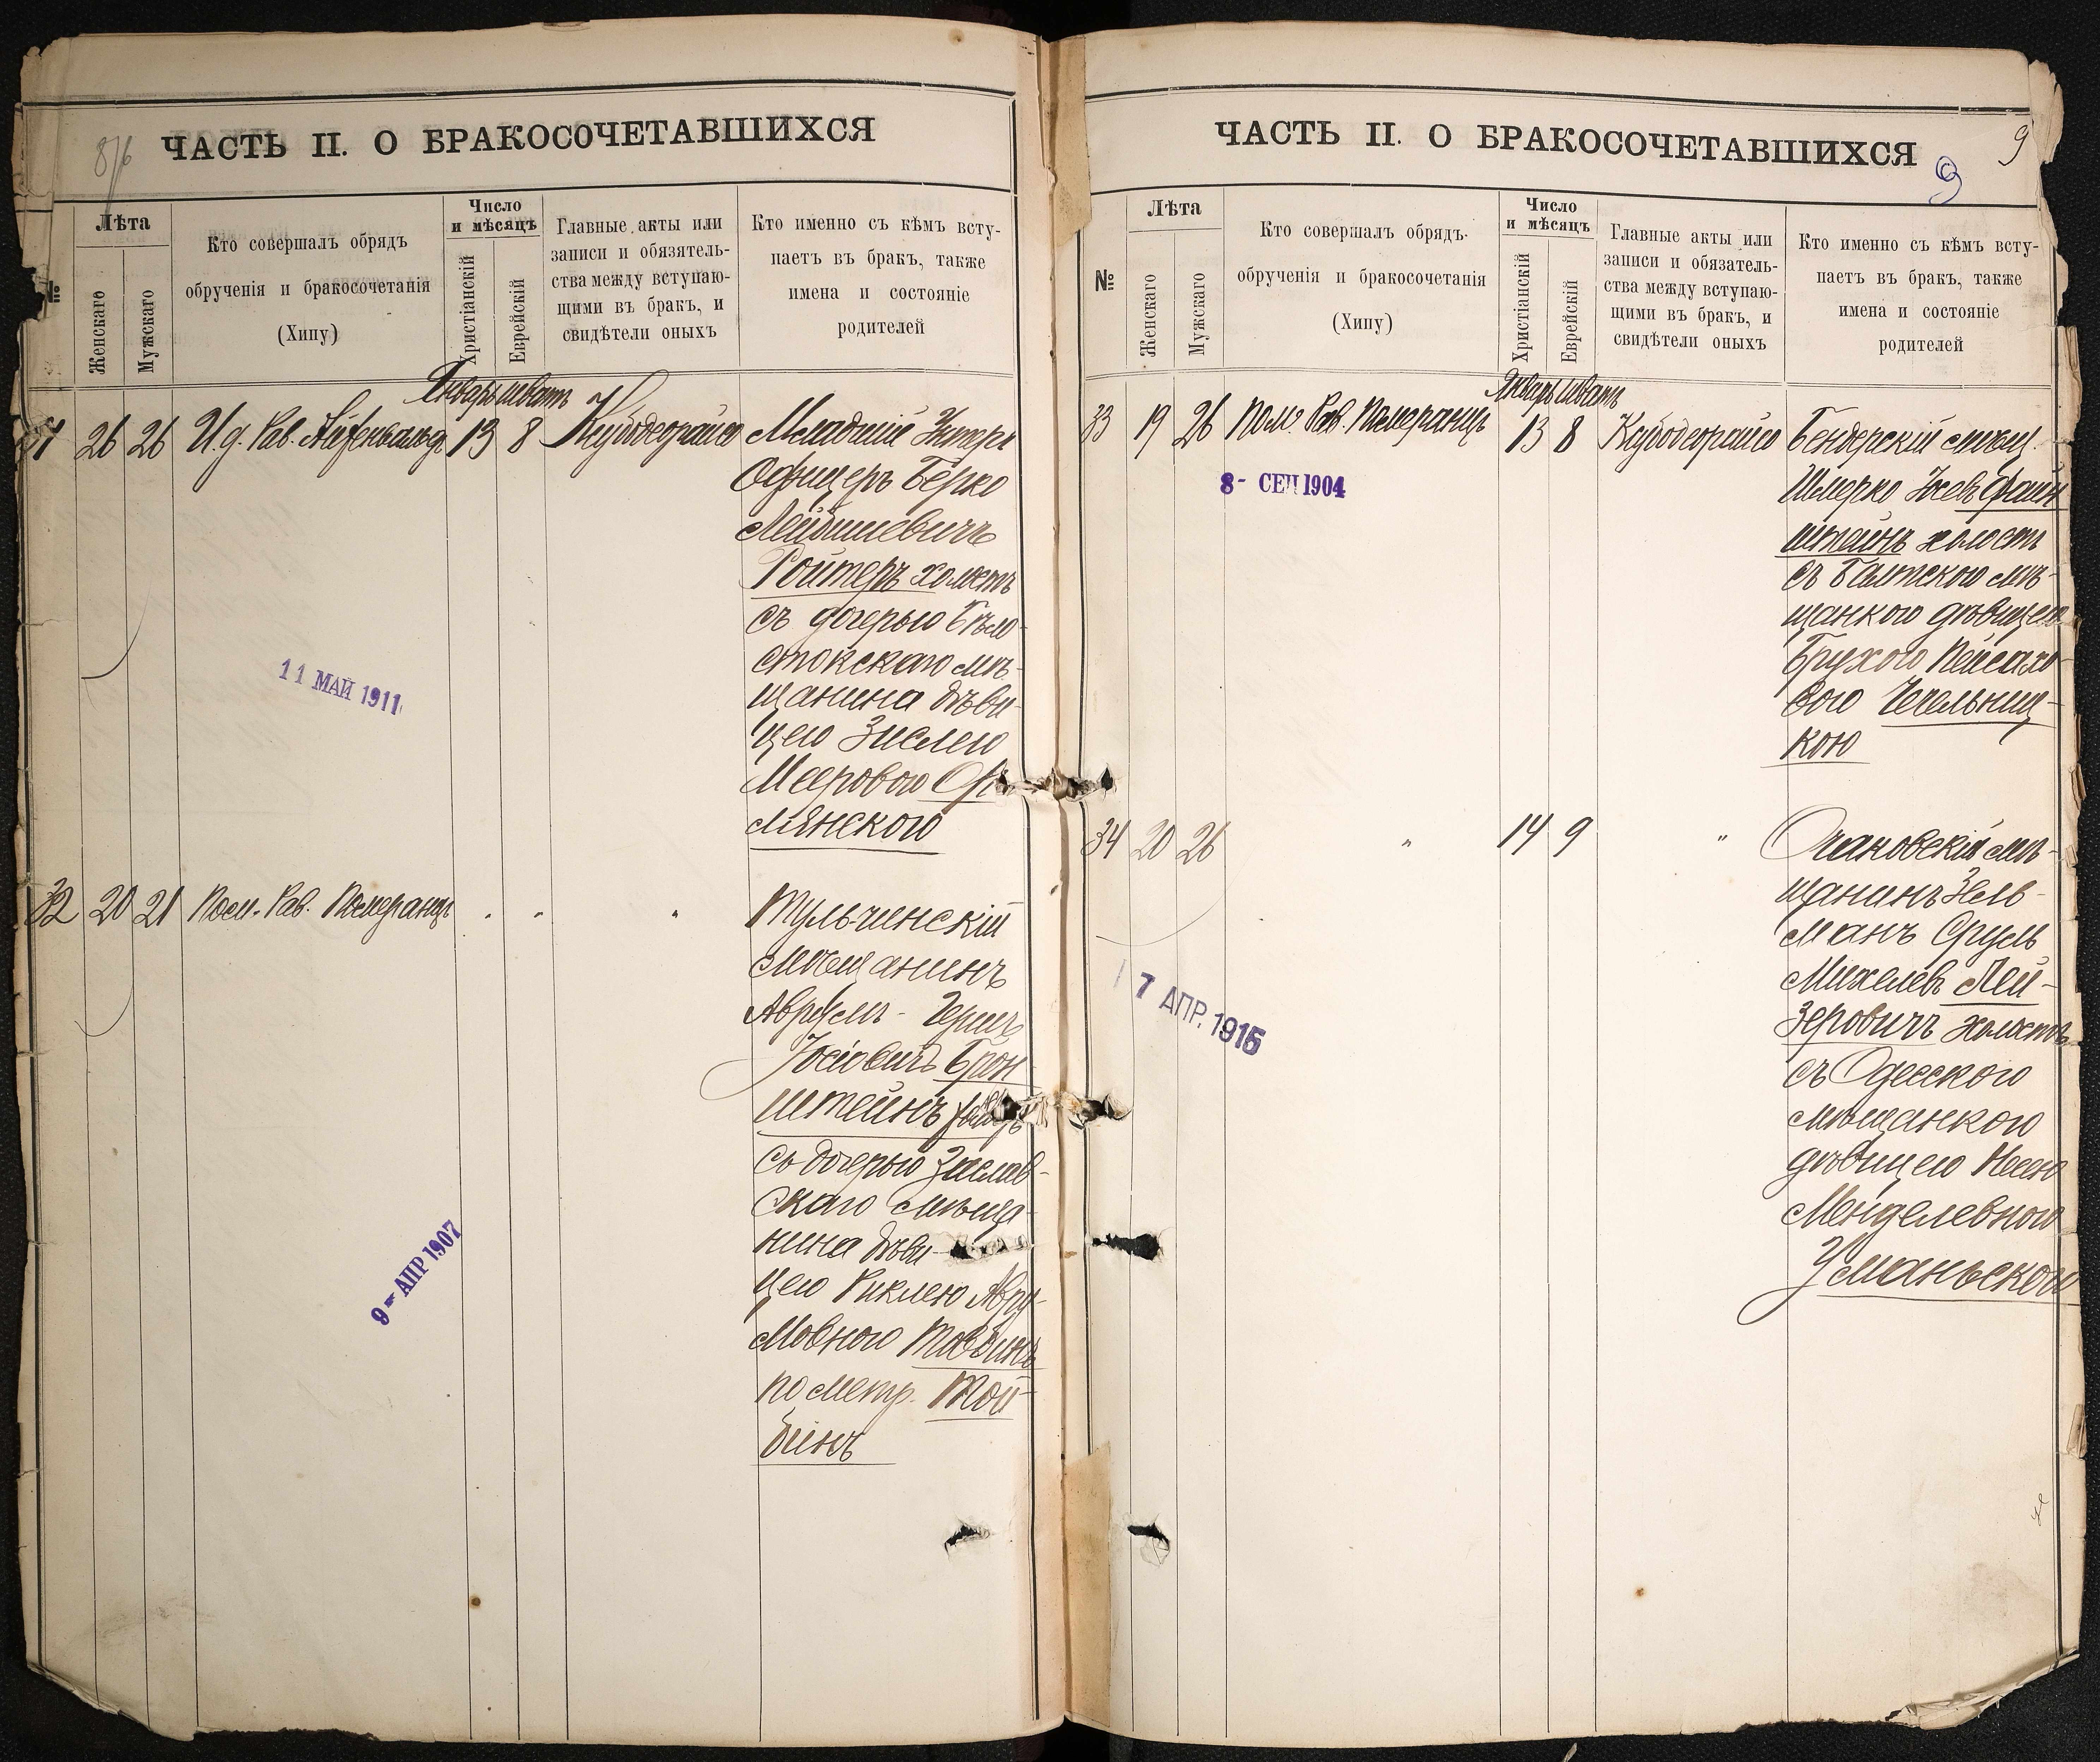 8/6
ЧАСТЬ II. О БРАКОСОЧЕТАВШИХСЯ
№
Лѣта
Женскаго
Мужскаго
Кто совершалъ обрядъ
обрученія и бракосочетанія
(Хипу)
Число
и мѣсяцъ
Христіанскій
Еврейскій
Главные акты или
записи и обязятель-
ства между вступаю-
щими въ бракъ, и
свидѣтели оныхъ
Кто именно съ кѣмъ всту-
паетъ въ бракъ, также
имена и состояніе
родителей
Январь шватъ
26 26 И.д. Рав. 13 8
Младшій Унтеръ
Офицеръ Берко
Лейбишевичъ
Ройтеръ холостъ
съ дочерью Бѣло-
стокскаго мѣ-
щанина дѣви-
цею Зислею
Мееровою
лянскою
11 МАЙ 1911
32 20 21 Пом. Рав. Померанцъ " " "
Тульчинскій
мѣщанинъ
Аврумъ - Гершъ
Іосіовичъ Брон-
штейнъ
съ дочерью Заслав-
скаго мѣща-
нина дѣви-
цею Риклею Авру-
мовною Товбинъ
по метр. Той-
бинъ
9 - АПР 1907
9
9
ЧАСТЬ II. О БРАКОСОЧЕТАВШИХСЯ
№
Лѣта
Женскаго
Мужскаго
Кто совершалъ обрядъ
обрученія и бракосочетанія
(Хипу)
Число
и мѣсяцъ
Христіанскій
Еврейскій
Главные акты или
записи и обязатель-
ства между вступаю-
щими въ бракъ, и
свидѣтели оныхъ
Кто именно съ кѣмъ всту-
паетъ въ бракъ, также
имена и состояніе
родителей
Январь шватъ
33 19 26 Пом. Рав. Померанцъ 13 8
Бендерскій мѣщ.
Шмерко Іосев Файн-
штейнъ холостъ
съ Балтскою мѣ-
щанкою дѣвицею
Брухою Пейсахо-
вою Чечельниц-
кою
8 - СЕП 1904
34 20 26 " 14 9 "
Очаковскій мѣ-
щанинъ Зель-
манъ Сруль
Михелевъ Лей-
зеровичъ холостъ
съ Одесскою
мѣщанкою
дѣвицею Несею
Менделевною
Уманьскою
7 АПР. 1915